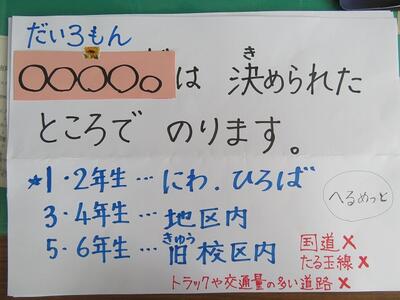 だい3もん
〇〇〇〇〇は 決められた
き
ところで のります。
*1・2年生…にわ.ひろば
3・4年生…地区内
5・6年生…旧校区内
きゅう
へるめっと
国道×
たる玉線×
トラックや交通量の多い道路×